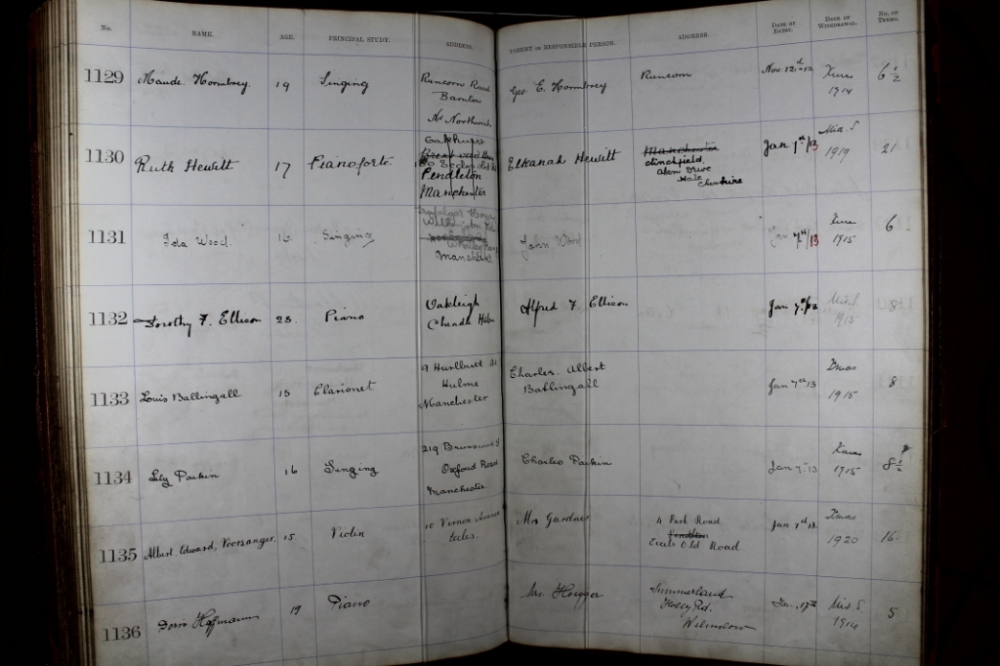 No. NAME. AGE. PRINCIPAL STUDY. ADDRESS. PARENT OR RESPONSIBLE PERSON. ADDRESS. DATE OF ENTRY. DATE OF WITHDRAWAL. No. OF TERMS.
1129 Maude Hornbrey 19 Singing Runcorn Road Geo. E. Hornbrey Runcorn Nov 12th 12 Xmas 6 1/2
Barnton 1914
Nr Northwich
1130 Ruth Hewitt 17 Pianoforte Oakhurst Elkanah Hewitt Manchester Jan 7th/13 Mid S 21
Eccles Old Rd clinchfield 1919
Pendleton Hale
Manchester Cheshire
1131 Ida Wood 16 Singing John Wood Jan 7th/13 Xmas 6
Manchester 1915
1132 Dorothy F. Ellison 23 Piano Oakleigh Alfred F. Ellison Jan 7th/13 8
Cheadle Hulme 1915
1133 Louis Ballingall 15 Clarionet 9 Hurlbutt St Charles Albert Jan 7th 13 Xmas 8
Hulme Ballingall 1915
Manchester
1134 Lily Parkin 16 Singing 219 Brunswick St Charles Parkin Jan 7th 13 Xmas 8 1/2
Oxford Road 1915
Manchester
1135 Albert Edward Voorsanger 15 Violin 10 Vernon Avenue Mrs Gardner 4 Park Road Jan 7th 13 Xmas 16
Eccles. Pendleton 1920
Eccles Old Road
1136 Doris Hoffmann 19 Piano Mrs. Summerland Jan. 17th Mids S. 5
Holly Rd. 1914
Wilmslow